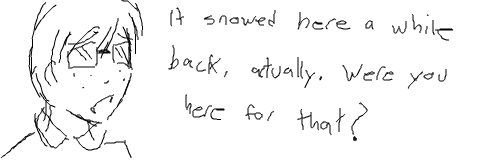 It snowed here a while
back, atually. Were you
here for that?